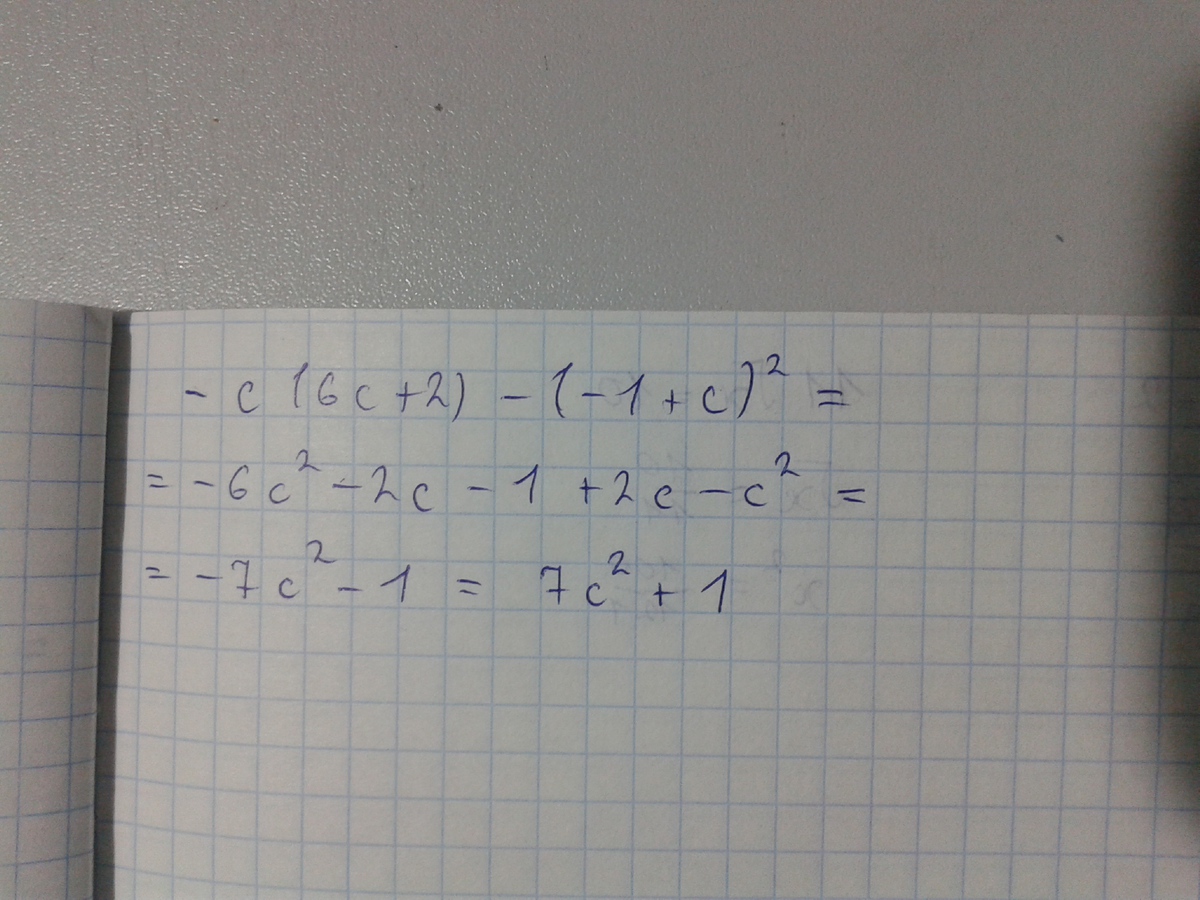 - c (6c+2) - (-1+c)² =
= -6c² -2c - 1 +2c -c² =
= -7c² - 1 = 7c² + 1